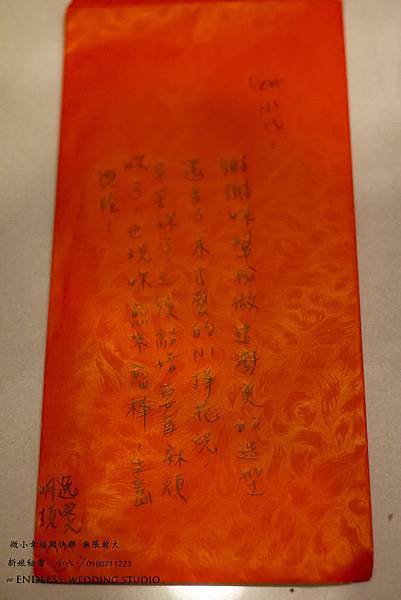 Dear 小八:
謝謝妳幫我做這麼美的造型
還多了束可愛的小捧花呢,
辛苦妳了,之後結婚要再麻煩
妳了,也祝妳愈來愈棒,生意
興隆!
微小幸福與快樂 無限放大
新娘秘書-小八 / 0960711223
∞ ENDLESS. WEDDING STUDIO